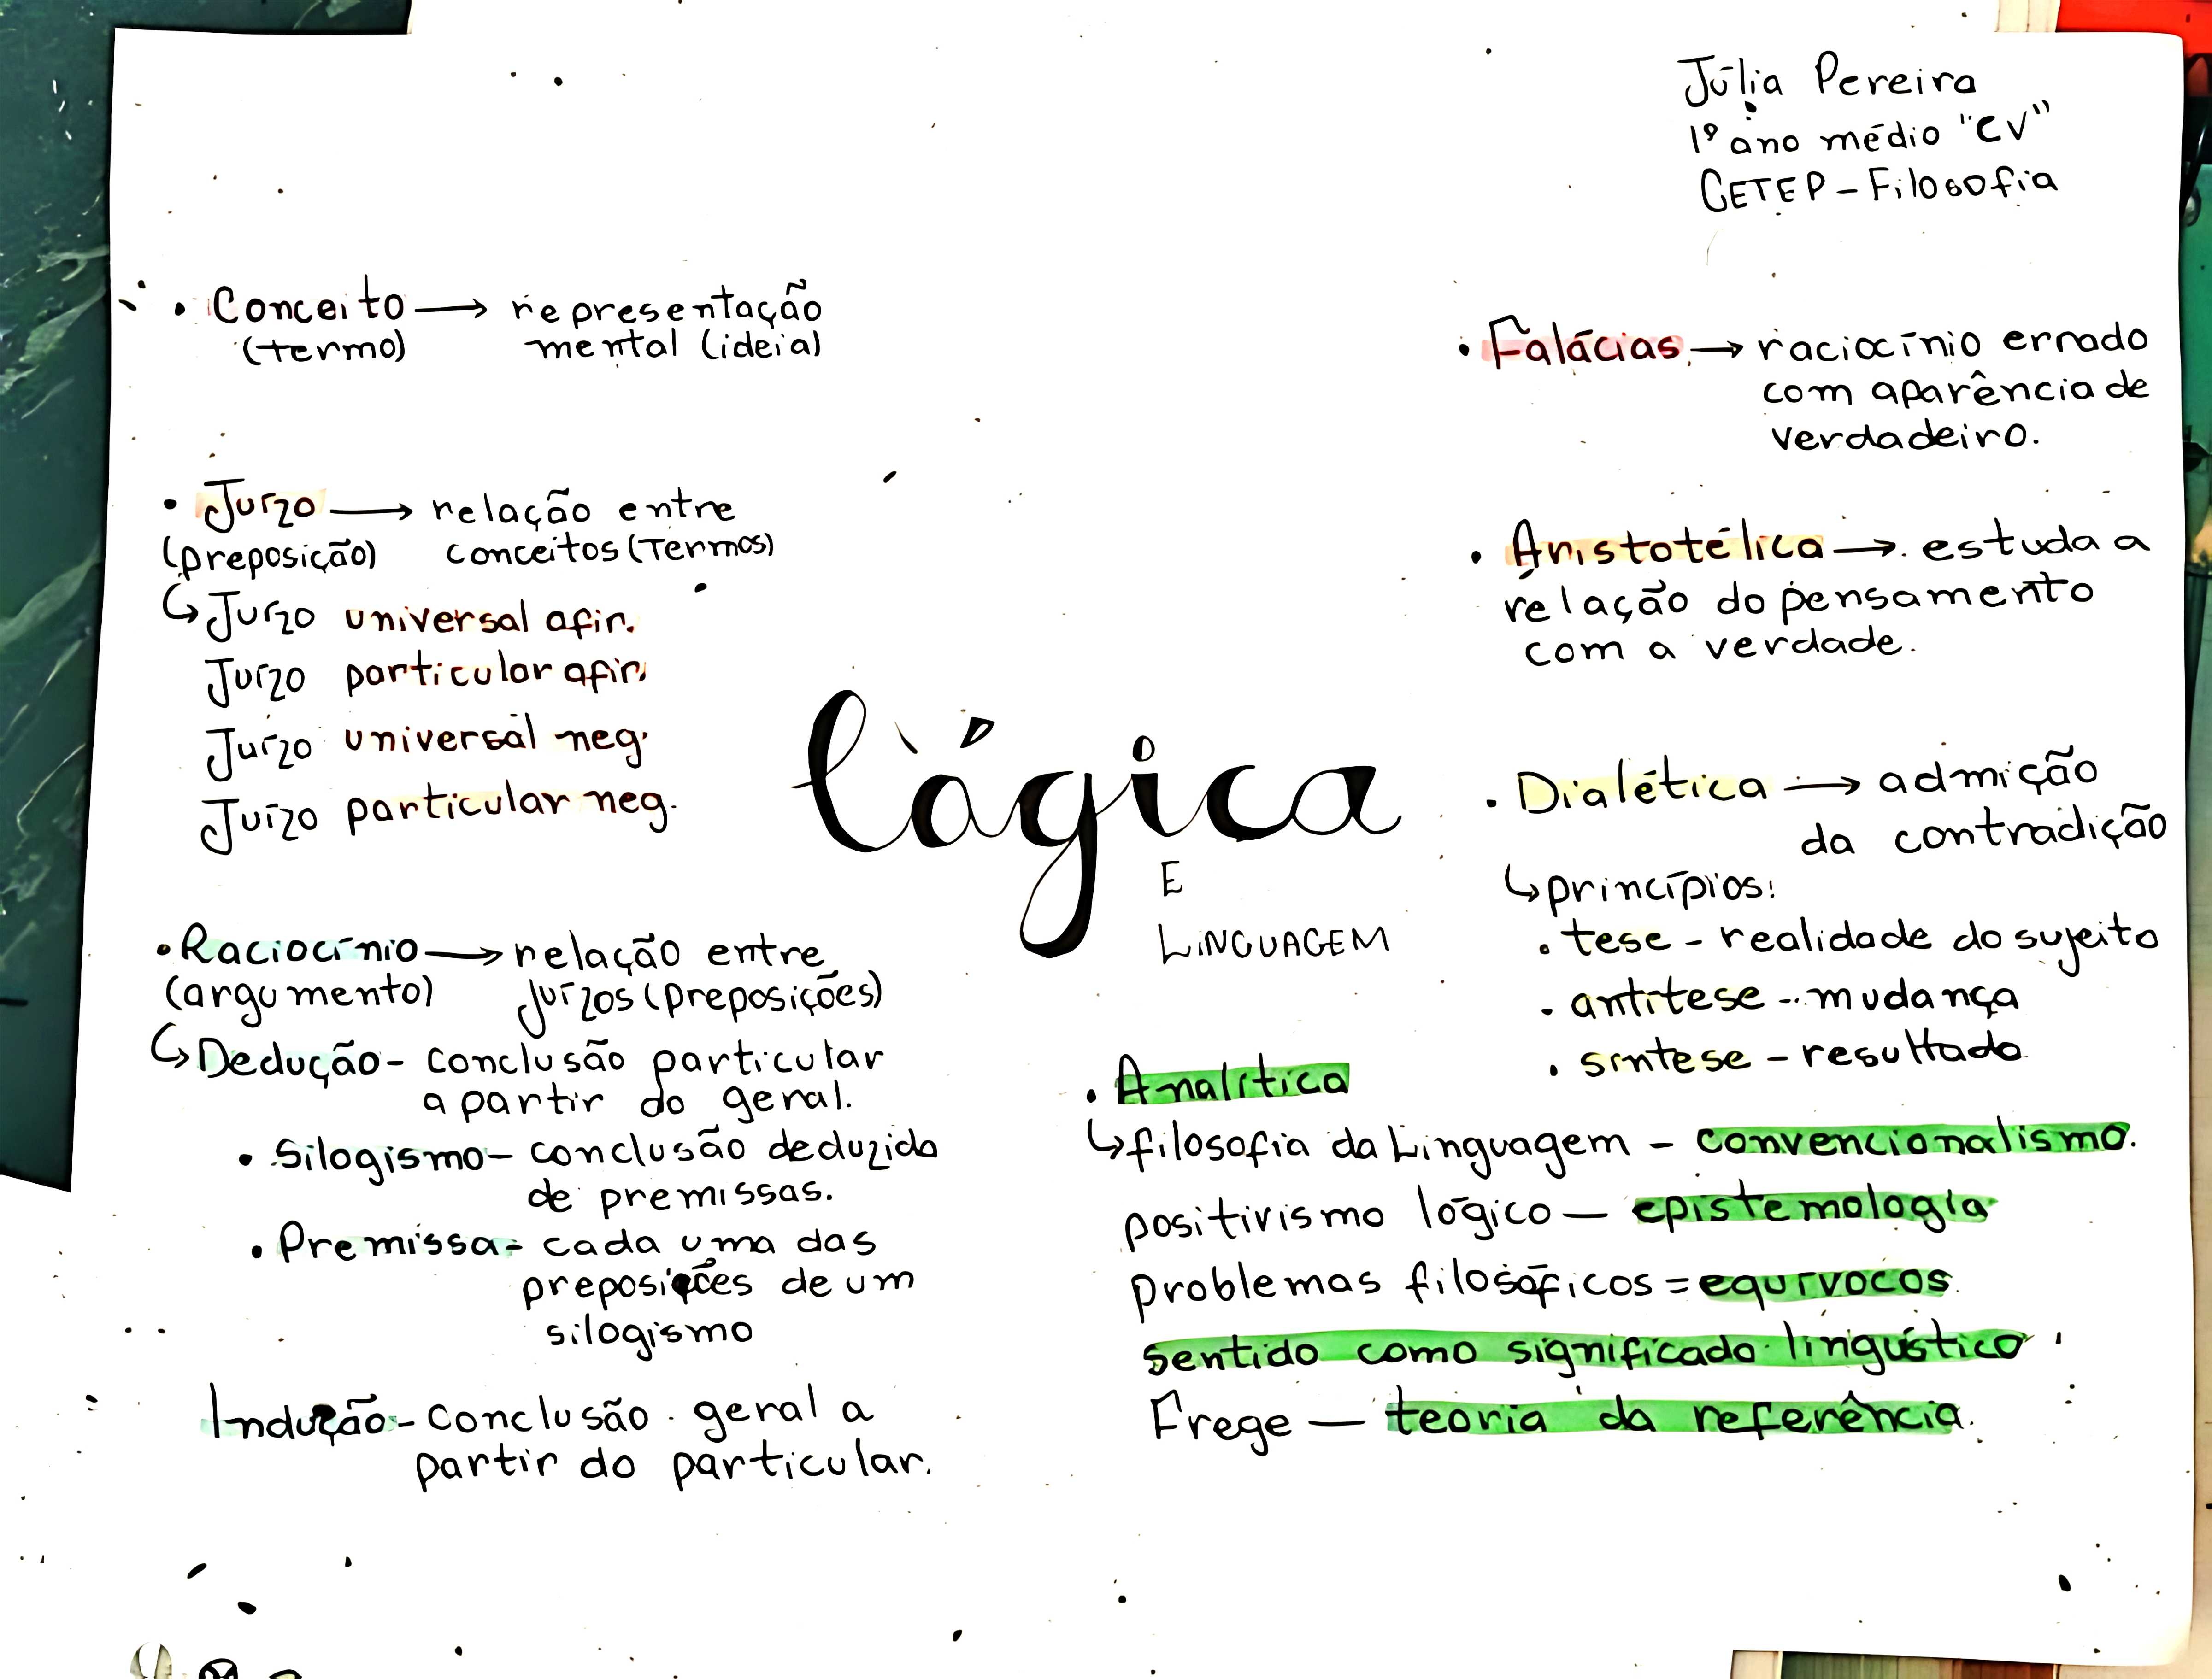 Júlia Pereira
1º ano médio "CV"
CETEP - Filosofia
• Conceito → representação
(termo) mental (ideia)
• Juízo → relação entre
(preposição) conceitos (Termos)
↳ Juízo universal afir.
Juízo particular afir.
Juízo universal neg.
Juízo particular neg.
• Raciocínio → relação entre
(argumento) Juízos (preposições)
↳ Dedução - conclusão particular
a partir do geral.
• Silogismo - conclusão deduzida
de premissas.
• Premissa - cada uma das
preposições de um
silogismo
Indução - conclusão geral a
partir do particular.
lógica
E
LINGUAGEM
• Falácias → raciocínio errado
com aparência de
verdadeiro.
• Aristotélica → estuda a
relação do pensamento
com a verdade.
• Dialética → admição
da contradição
↳ princípios:
• tese - realidade do sujeito
• antítese - mudança
• síntese - resultado
• Analítica
↳ filosofia da Linguagem - convencionalismo.
positivismo lógico - epistemologia
problemas filosóficos = equívocos
sentido como significado linguístico
Frege - teoria da referência.